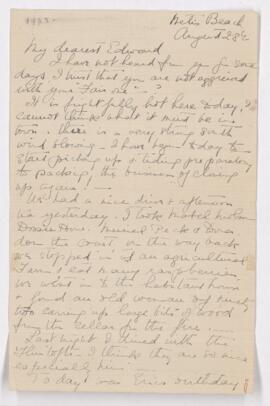 1923
Metis Beach
August 28th
My dearest Edward
I have not heard from you for some
days I trust that you are not aggrieved
with your "Fair one" - ?
It is frightfully hot here today, & I
cannot think what it must be in
town. There is a very strong South
wind blowing - I have begun today to
start picking up & tidying preparatory
to packing, the business of closing
up again! -
We had a nice drive & afternoon
tea yesterday. I took Mabel
Muriel Peck &
down the coast, on the way back
we stopped in at an agricultural
Farm, & eat many raspberries
we went in to the habitant house
& found an old woman of ninety
two carrying up large bits of wood
from the cellar for the fire ....
Last night I dined with the
I think they are so nice
especially him -
Today was Eric's birthday